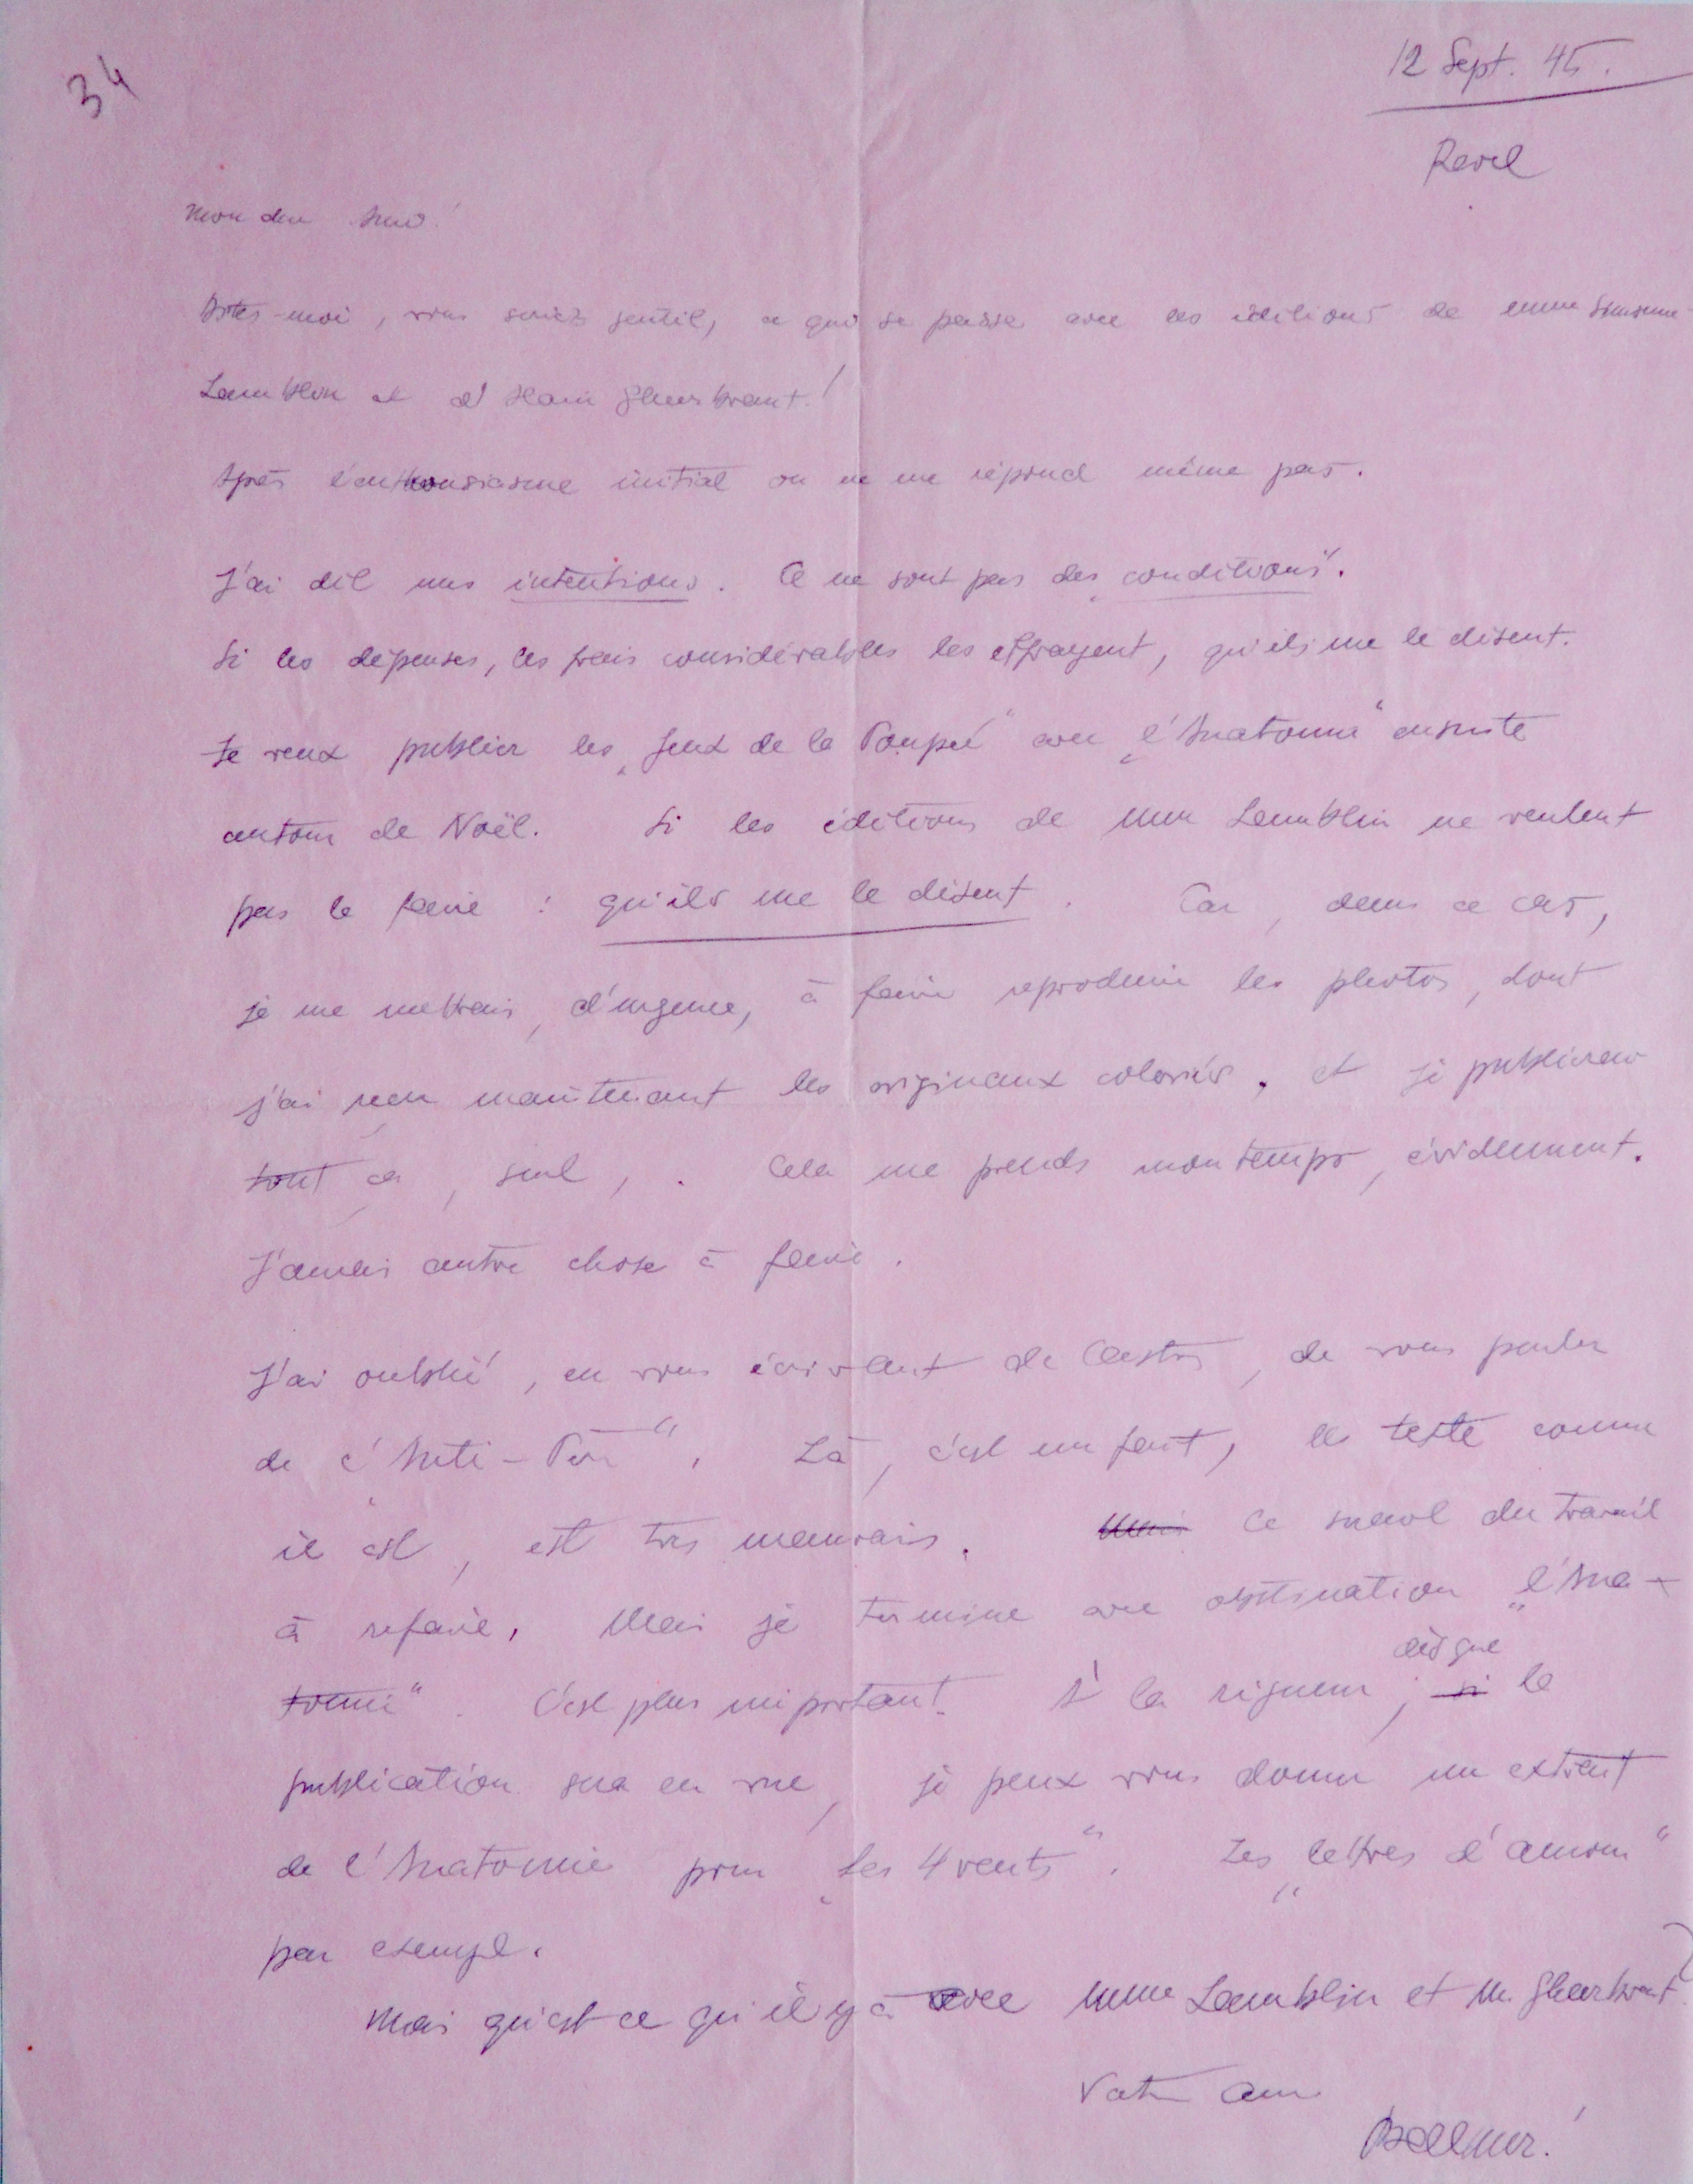 34
12 Sept. 45.
Revel
Mon cher Ami!
Dites-moi, vous seriez gentil, ce qui se passe avec les éditions de Mme Simone
Lamblin et d'Alain Gheerbrant!
Après l'enthousiasme initial on ne me répond même pas.
J'ai dit mes intentions. Ce ne sont pas des „conditions".
Si les dépenses, les frais considérables les effrayent, qu'ils me le disent.
Je veux publier les „Jeux de la Poupée" avec „l'Anatomie" ensuite
autour de Noël. Si les éditions de Mme Lamblin ne veulent
pas le faire : qu'ils me le disent. Car, dans ce cas,
je me mettrais, d'urgence, à faire reproduire les photos, dont
j'ai reçu maintenant les originaux coloriés, et je publierais
tout ça, seul, . Cela me prends mon temps, évidemment.
J'aurais autre chose à faire.
J'ai oublié, en vous écrivant de Castres, de vous parler
de „l'Anti-Père". Là, c'est un fait, le texte comme
il est, est très mauvais. Mais Ce serait du travail
à refaire. Mais je termine avec obstination „l'Ana-
tomie". C'est plus important. A la rigueur, si dès que la
publication sera en vue, je peux vous donner un extrait
de l'Anatomie pour „Les 4 vents". Les „lettres d'amour"
par exemple.
Mais qu'est ce qu'il y à avec Mme Lamblin et M. Gheerbrant?
Votre ami
Bellmer!